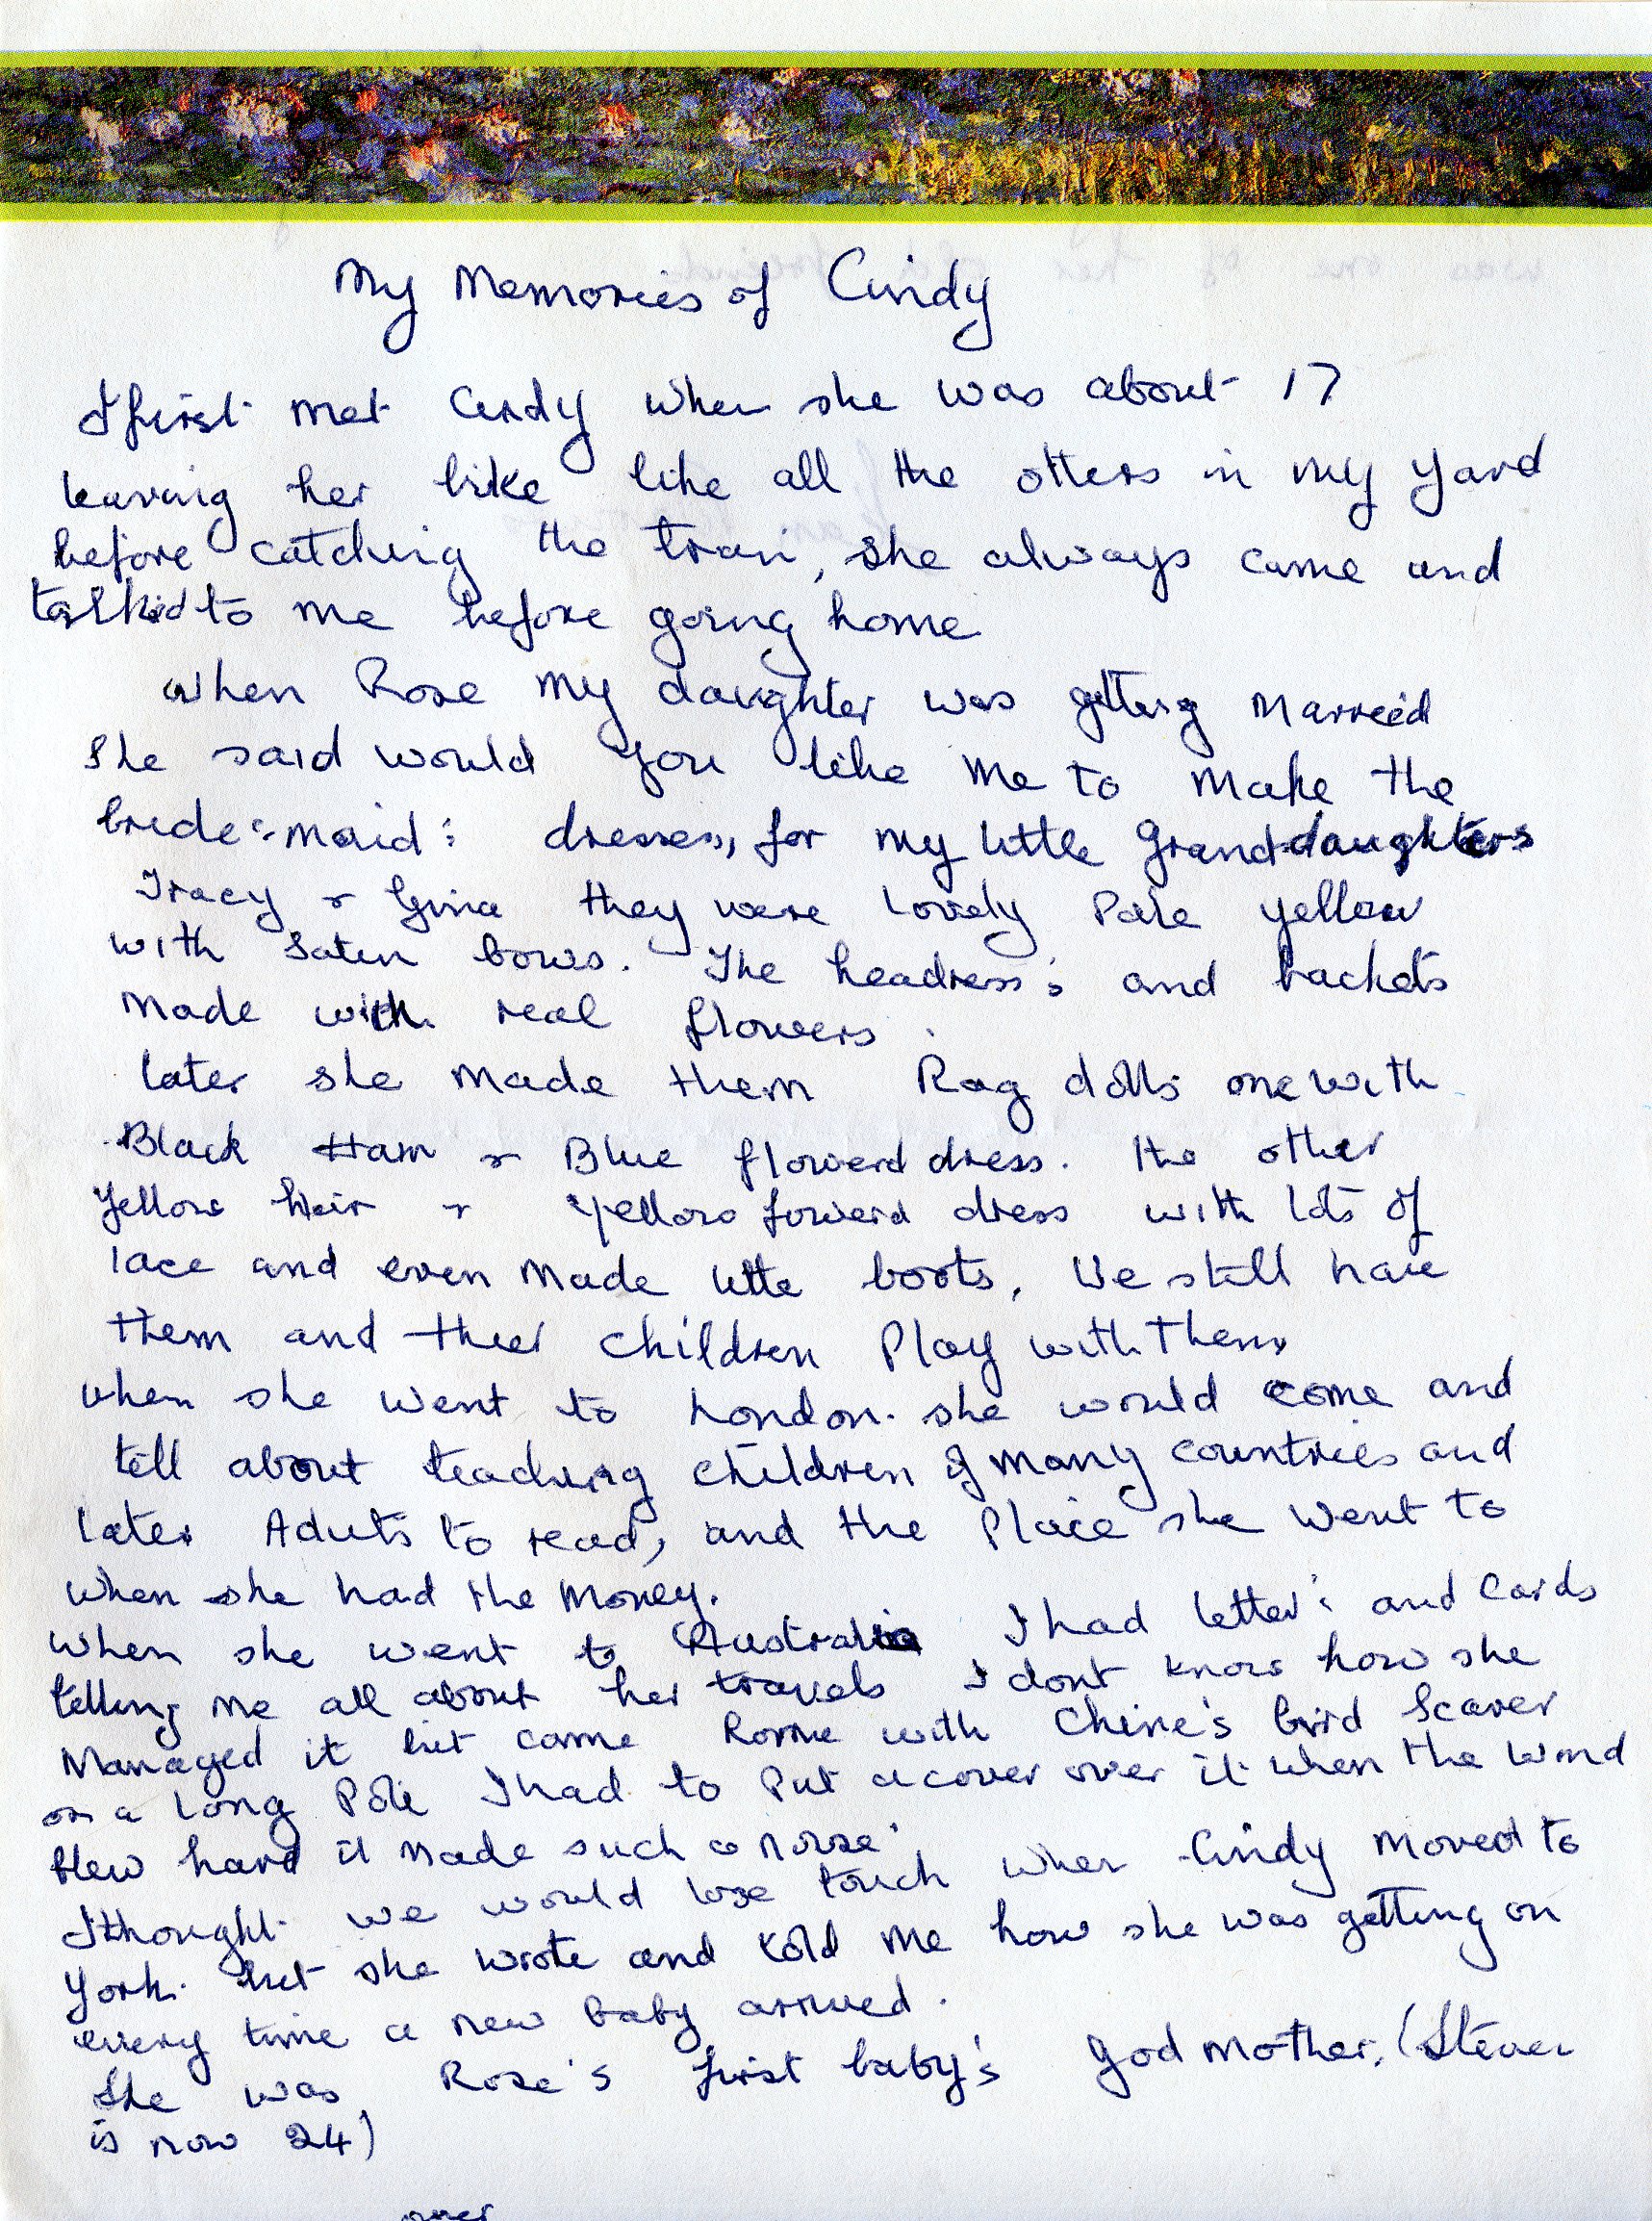 My Memories of Cindy
I first met Cindy when she was about 17
leaving her bike like all the others in my yard
before catching the train, she always came and
talked to me before going home
When Rose my daughter was getting Married
She said would you like me to make the
bride's-maid's dresses, for my little Grand-daughters
Tracy & Gina they were Lovely Pale yellow
with Saten bows. The headress's and backets
Made with real flowers.
later she made them Rag dolls one with
Black Hair & Blue flowerd dress. the other
Yellow hair & yellow flowerd dress with lots of
lace and even made little boots, We still have
them and their children Play with them
when she went to London. she would come and
tell about teaching children of many countries and
later Adults to read, and the Place she went to
when she had the Money.
When she went to Australia I had letter's and Cards
telling me all about her travels I dont know how she
Managed it but came home with Chine's bird Scarer
on a long Pole I had to Put a cover over it when the wind
blew hard it made such a noise.
I thought we would lose touch when Cindy moved to
York. but she wrote and told me how she was getting on
every time a new baby arrived.
She was Rose's first baby's god mother, (Steven
is now 24)
over